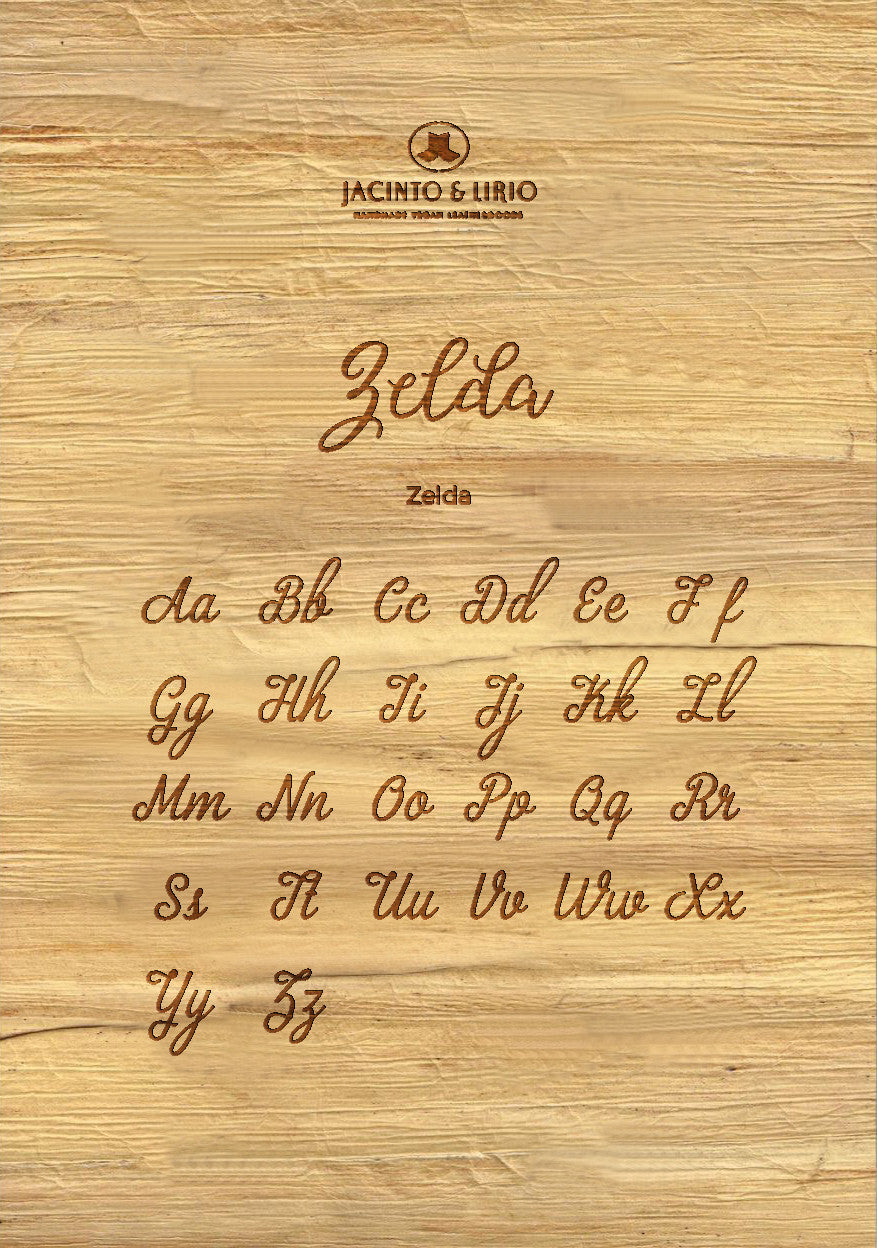 JACINTO & LIRIO
HANDMADE VEGAN LEATHER GOODS
Zelda
Zelda
Aa Bb Cc Dd Ee Ff
Gg Hh Ii Jj Kk Ll
Mm Nn Oo Pp Qq Rr
Ss Tt Uu Vv Ww Xx
Yy Zz